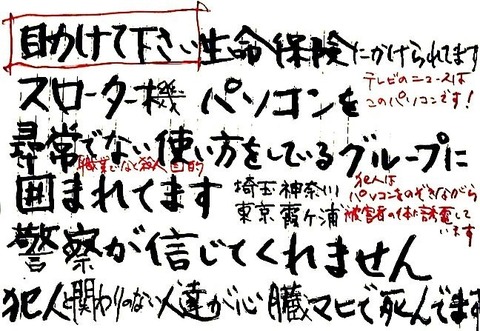 目かけて下さい生命保険にかけられてます
スローター機 パソコンを
テレビのニュースは
このパソコンです！
尋常でない使い方をしているグループに
職業いなど殺人目的
囲まれてます
埼玉神奈川
東京霞ヶ浦
犯人は
パソコンをのぞきながら
被害者の体に誘電して
います
警察が信じてくれません
犯人と関わりのない人達が心臓マヒで死んでます